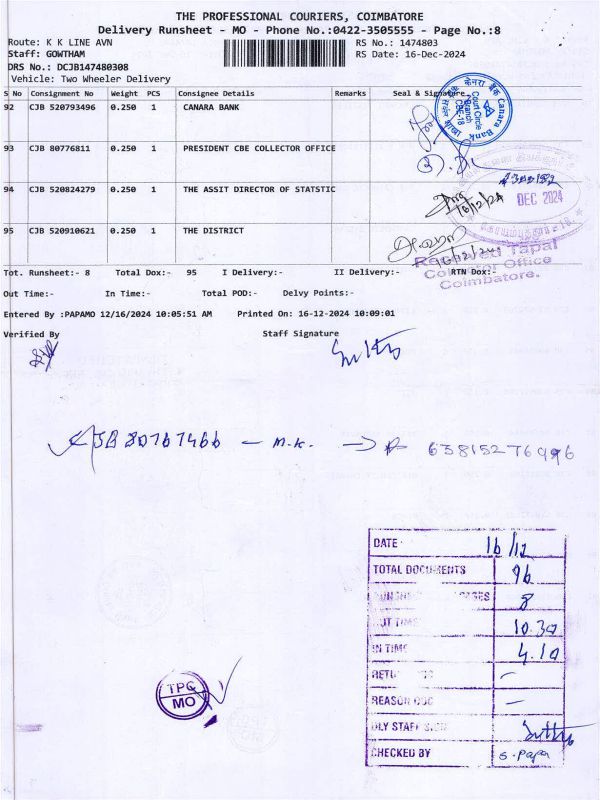 THE PROFESSIONAL COURIERS, COIMBATORE
Delivery Runsheet - MO - Phone No.:0422-3505555 - Page No.:8
Route: K K LINE AVN RS No.: 1474803
Staff: GOWTHAM RS Date: 16-Dec-2024
DRS No.: DCJB147480308
Vehicle: Two Wheeler Delivery
S No Consignment No Weight PCS Consignee Details Remarks Seal & Signature
92 CJB 520793496 0.250 1 CANARA BANK
केनरा बैंक Canara Bank
Court Circle
Branch
CBE-18
93 CJB 80776811 0.250 1 PRESIDENT CBE COLLECTOR OFFICE
94 CJB 520824279 0.250 1 THE ASSIT DIRECTOR OF STATSTIC
16/12/24
DEC 2024
95 CJB 520910621 0.250 1 THE DISTRICT
Received Tapal
Collector Office
Coimbatore.
Tot. Runsheet:- 8 Total Dox:- 95 I Delivery:- II Delivery:- RTN Dox:-
Out Time:- In Time:- Total POD:- Delvy Points:-
Entered By :PAPAMO 12/16/2024 10:05:51 AM Printed On: 16-12-2024 10:09:01
Verified By Staff Signature
CJB 80767466 - M.K. →
DATE 16/12
TOTAL DOCUMENTS 96
8
OUT TIME 10.30
IN TIME 4.10
RETU —
REASON DOC —
DLY STAFF SIGN
CHECKED BY S. Papa
TPC
MO